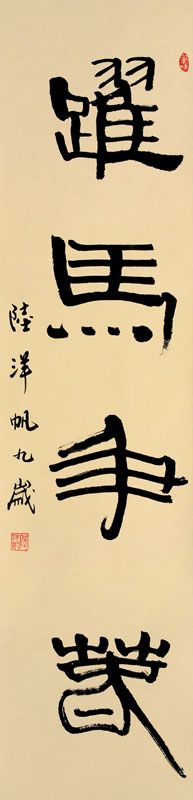 躍馬爭春
陸洋帆九歲